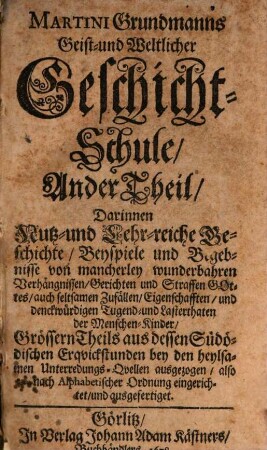 MARTINI Grundmanns
Geist-und Weltlicher
Geschicht-
Schule/
Ander Theil/
Darinnen
Nutz-und Lehr-reiche Ge-
schichte/ Beyspiele und Begeb-
nisse von mancherley wunderbahren
Verhängnissen/Gerichten und Straffen GOt-
tes/auch seltsamen Zufällen/Eigenschafften/und
denckwürdigen Tugend-und Lasterthaten
der Menschen-Kinder/
Grössern Theils aus dessen Südö-
dischen Erqvickstunden bey den heylsa-
men Unterredungs-Qvellen ausgezogen/also
nach Alphabetischer Ordnung eingerich-
tet/und ausgefertiget.
Görlitz/
In Verlag Johann Adam Kästners/
Buchhändlers